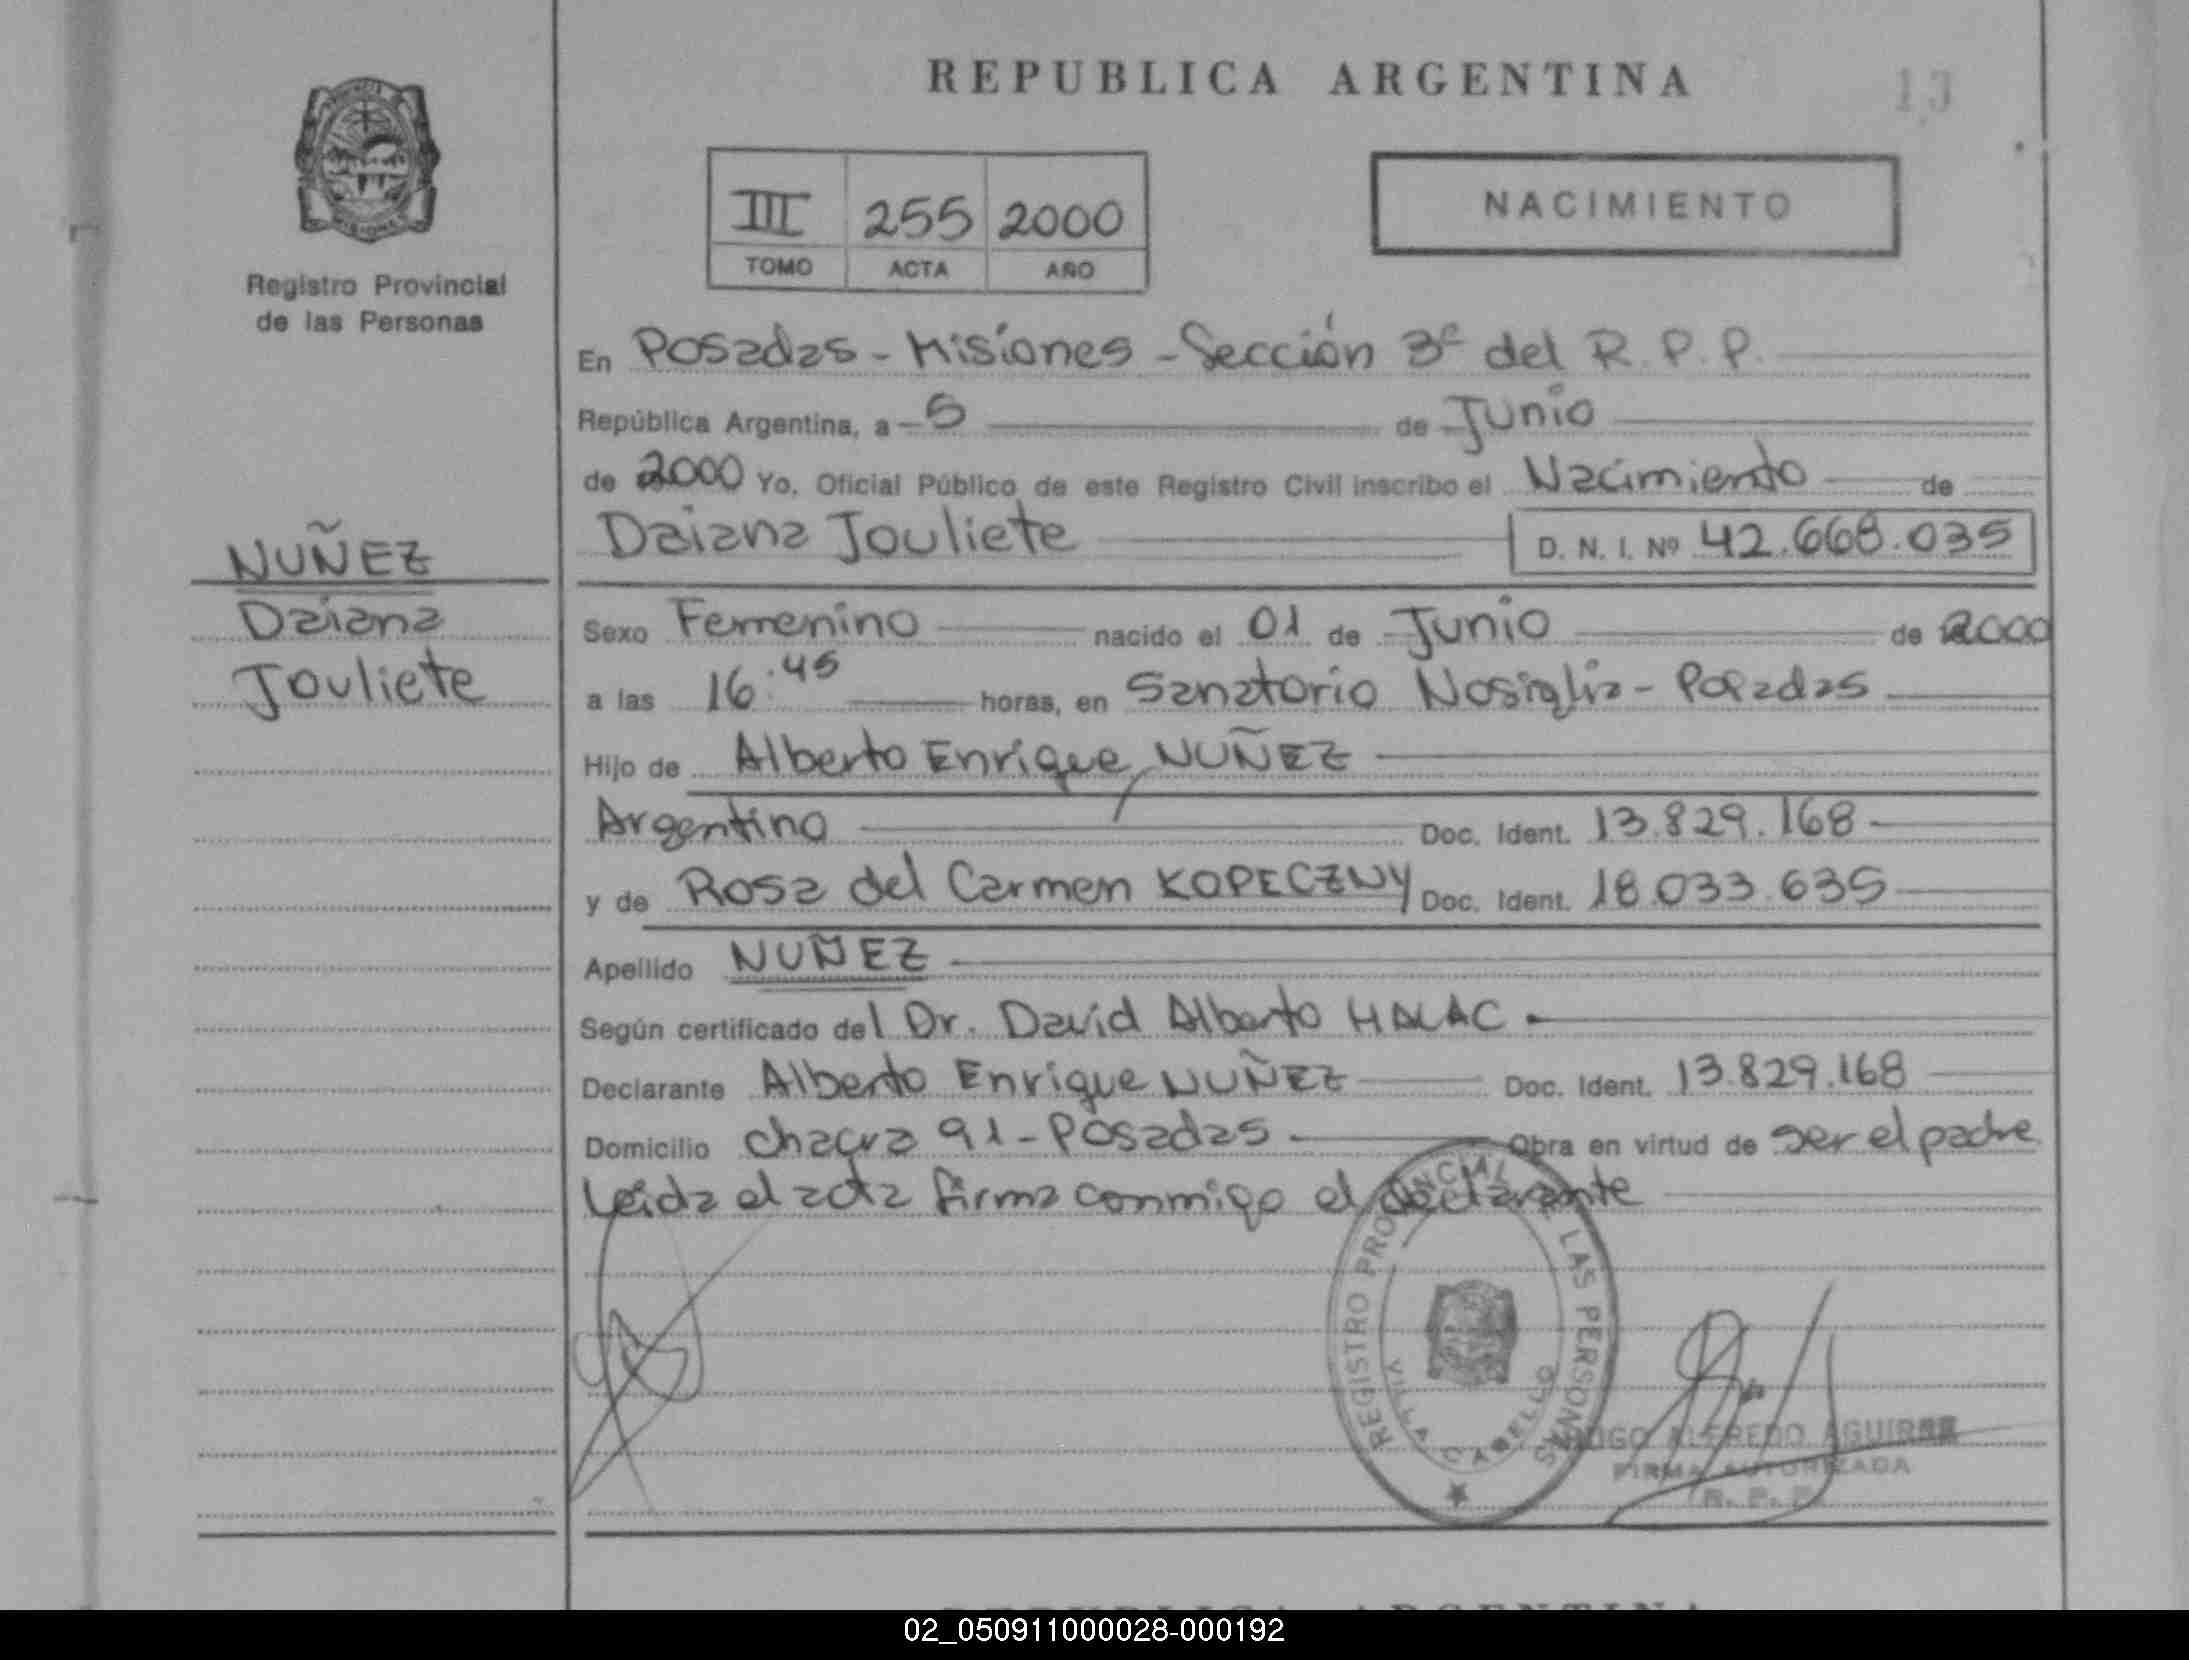 REPUBLICA ARGENTINA
13
NACIMIENTO
III 255 2000
TOMO ACTA AÑO
Registro Provincial
de las Personas
En Posadas - Misiones - Sección 3ª del R. P. P.
República Argentina, a 5 de Junio
de 2000 Yo, Oficial Público de este Registro Civil inscribo el Nacimiento de
Daiana Jouliete D. N. I. Nº 42.668.035
NUÑEZ
Daiana
Jouliete
Sexo Femenino nacido el 01 de Junio de 2000
a las 16:45 horas, en Sanatorio Nosiglia - Posadas
Hijo de Alberto Enrique NUÑEZ
Argentino Doc. Ident. 13.829.168
y de Rosa del Carmen KOPECZNY Doc. Ident. 18.033.635
Apellido NUÑEZ
Según certificado del Dr. David Alberto HALAC.
Declarante Alberto Enrique NUÑEZ Doc. Ident. 13.829.168
Domicilio chacra 91 - Posadas Obra en virtud de ser el padre
Leida el acta firma conmigo el declarante
REGISTRO PROVINCIAL DE LAS PERSONAS
VILLA CABELLO
HUGO ALFREDO AGUIRRE
FIRMA AUTORIZADA
(R. P. P.)
REPUBLICA ARGENTINA
02_050911000028-000192